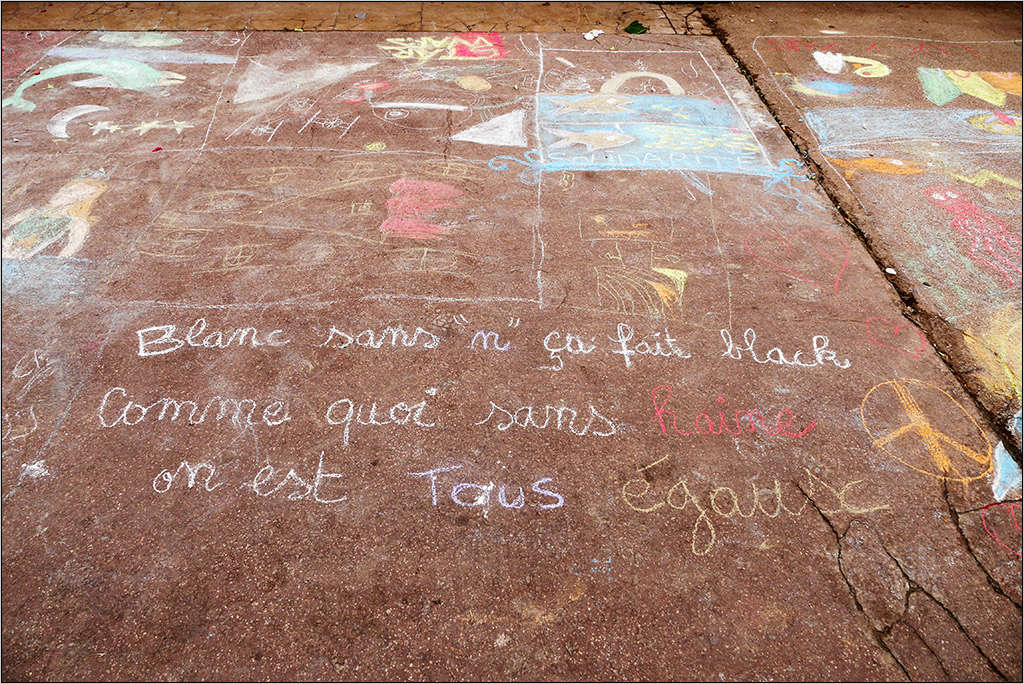 SOLIDARITÉ
Blanc sans "n" ça fait black
Comme quoi sans haine
on est Tous égaux